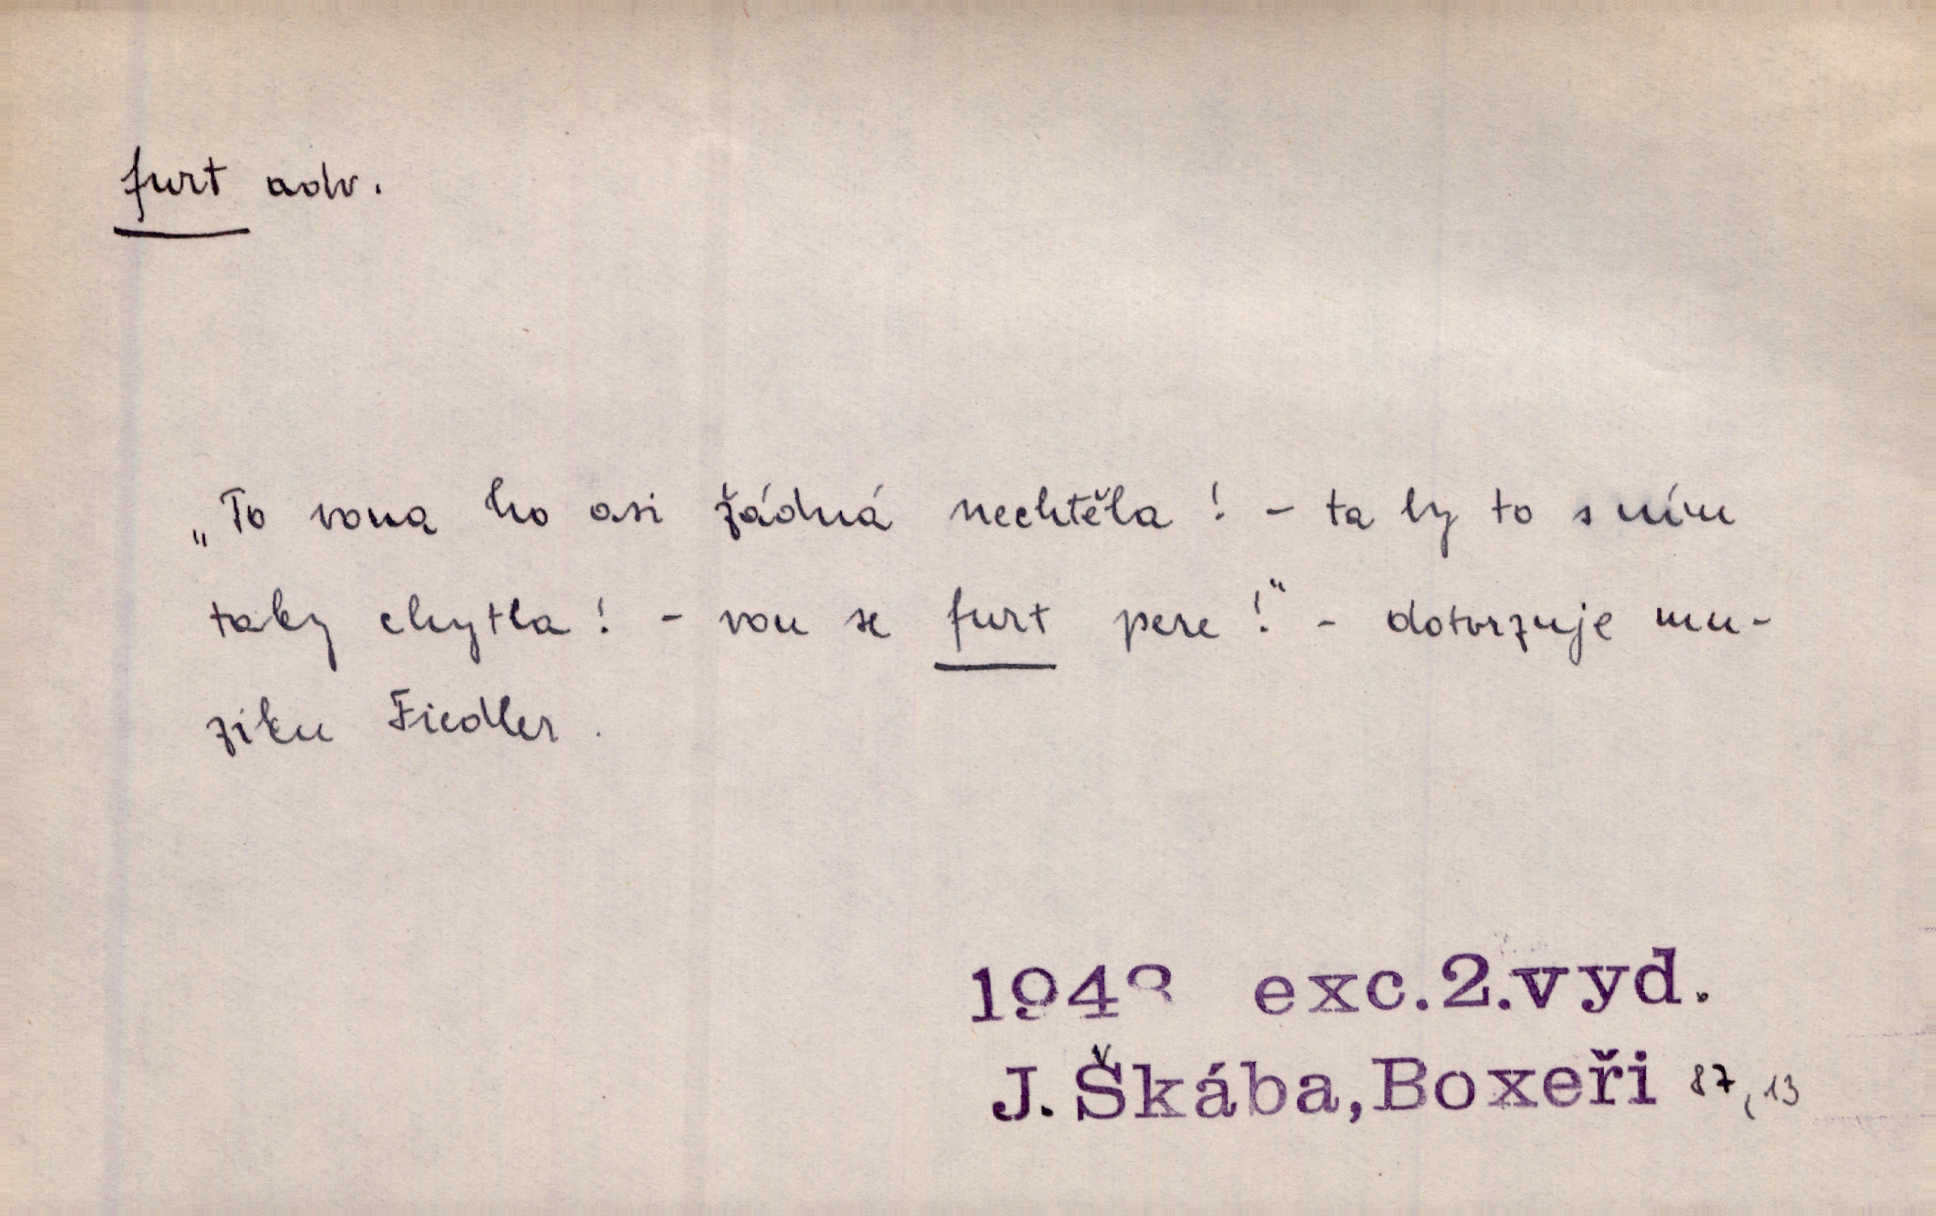 furt adv.
„To vona ho asi žádná nechtěla! - ta by to s ním
taky chytla! - von se furt pere!" - dotvrzuje mu-
ziku Fiedler.
exc.2.vyd.
J. Škába, Boxeři 87, 13